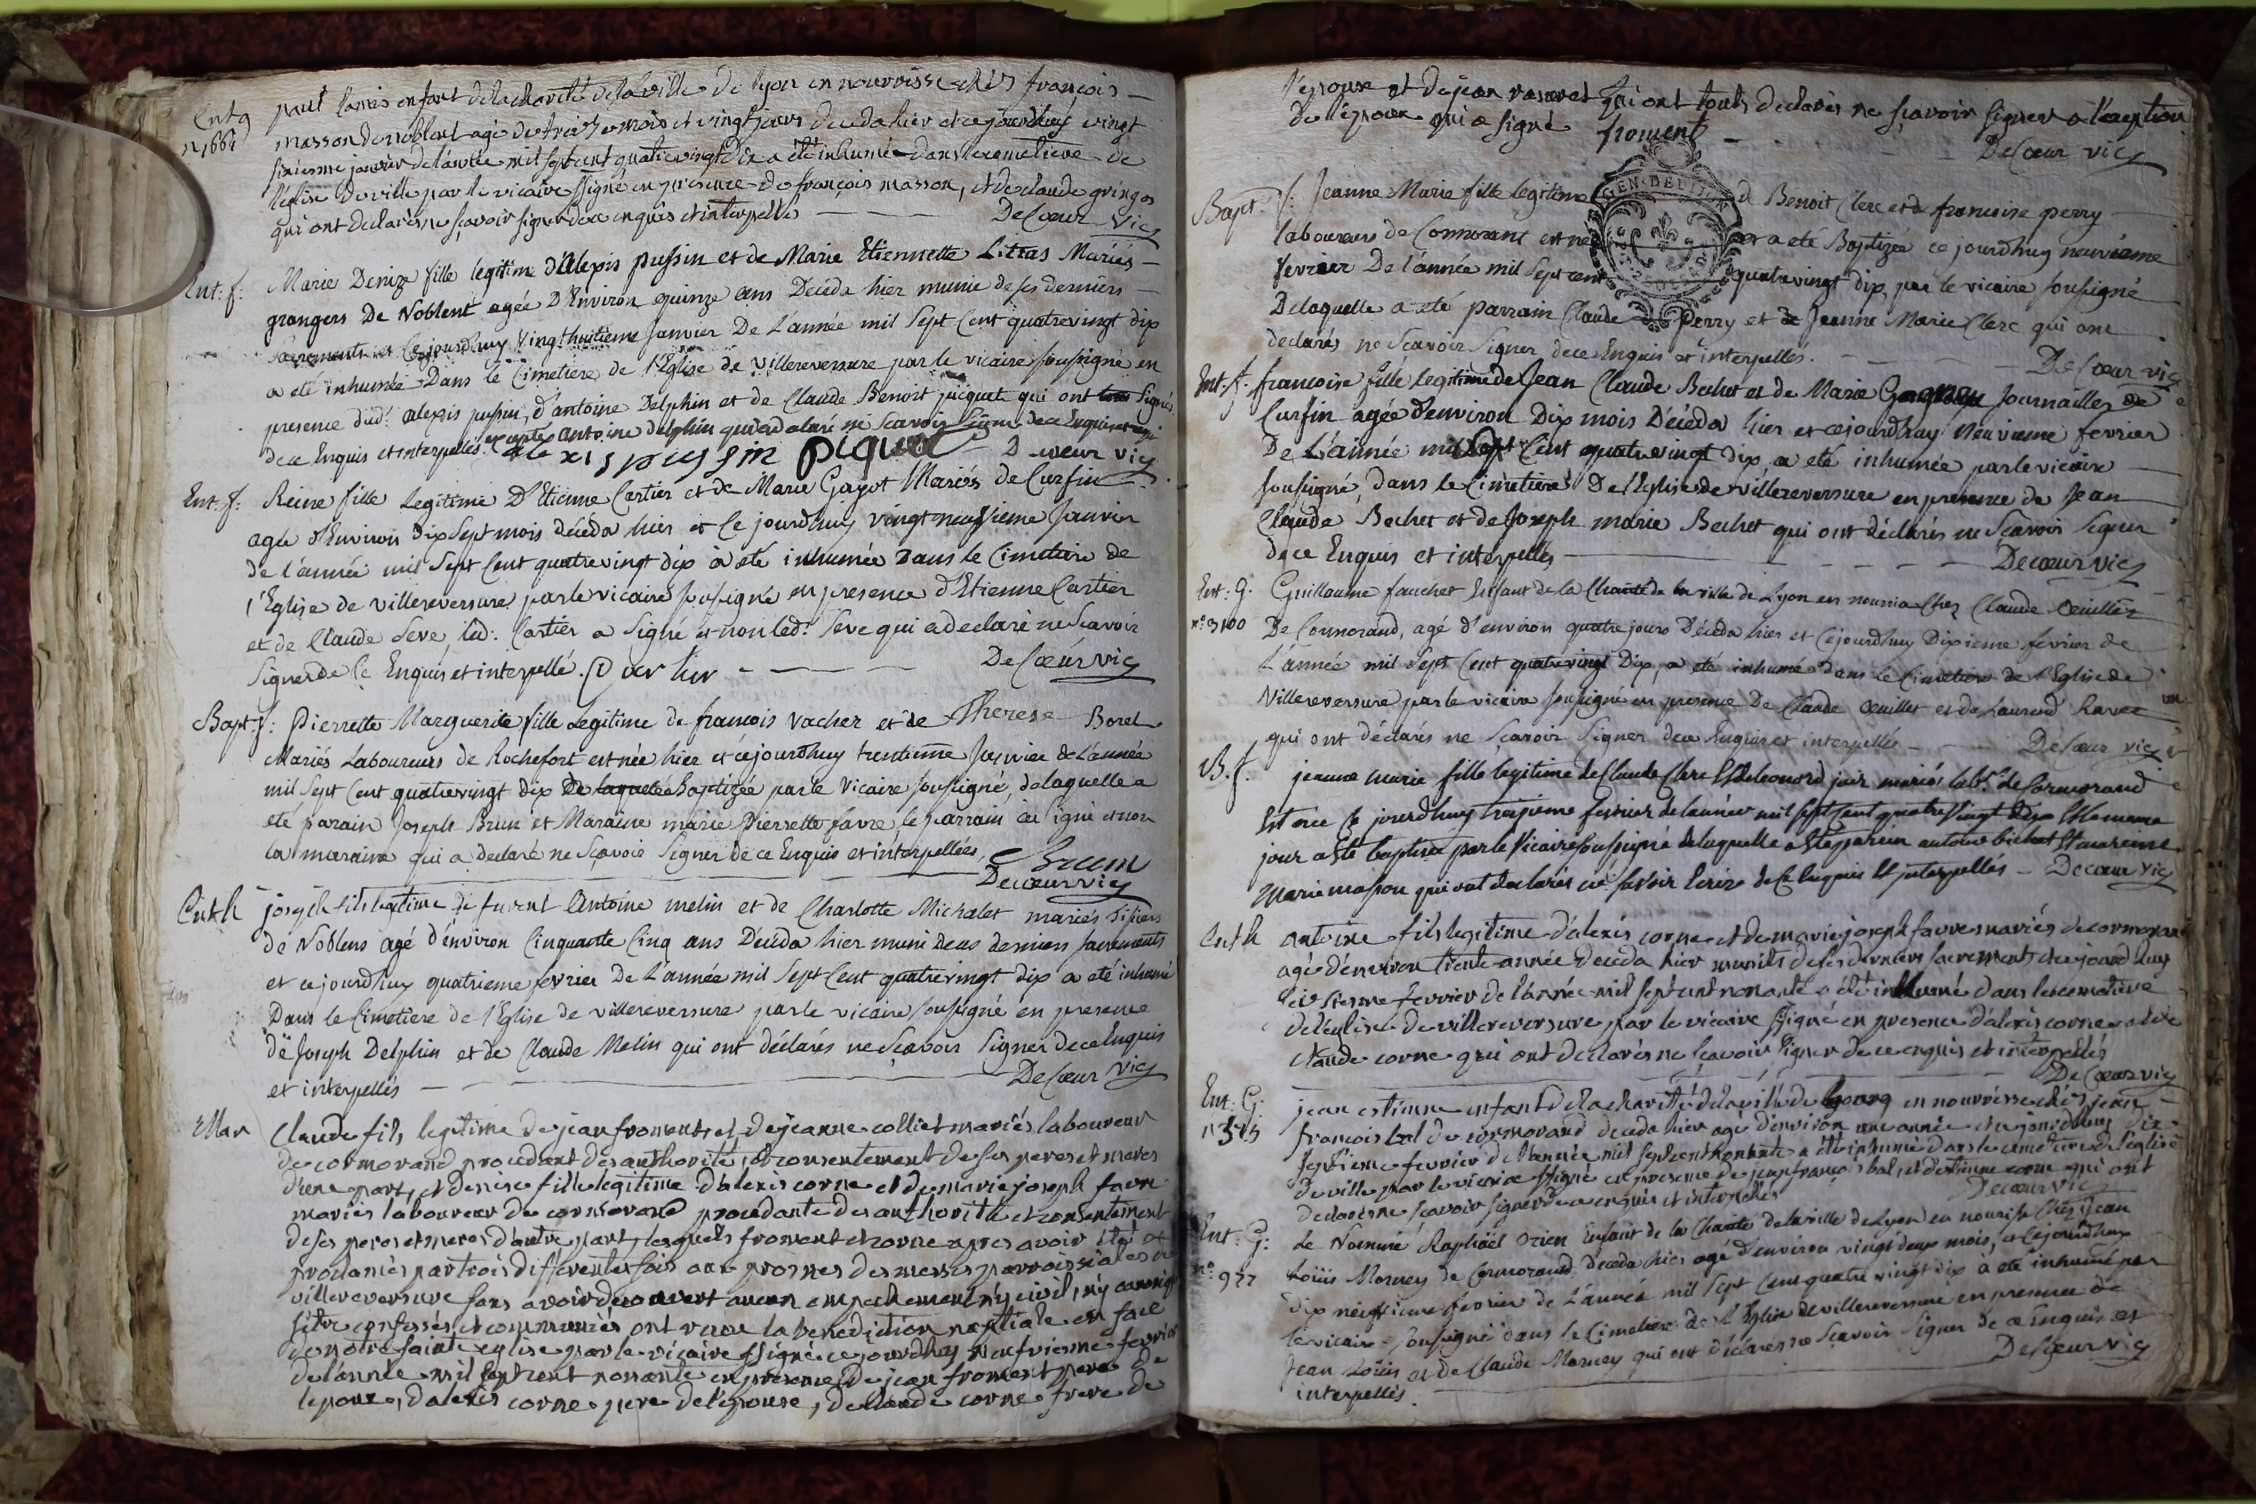 Ent g paul lamis enfant de la charité de la ville de lyon en nourrisse chés françois
n 1661 masson de noblent agé de treize mois et vingt jours deceda hier et ce jourdhuy vingt
sixiesme janvier de l'année mil sept cent quatre vingt dix a été inhumé dans le cemetiere de
l'église de ville par le vicaire ssigné en presence de françois masson, et de claude gringos
qui ont declarés ne sçavoir signer de ce enquis et interpellés DeCœur Vic
Ent: f: Marie Denize fille legitime d'Alexis pussin et de Marie Etiennette Litras Mariés
grangers De Noblent agée D'Environ quinze ans Décéda hier munie de ses derniers
sacrements et Cejourd'huy Vingthuitieme Janvier De L'année mil Sept Cent quatrevingt dix
a été inhumée Dans le Cimetiere de l'Eglise de Villereversure par le vicaire soussigné en
presence dud: alexis pussin, d'antoine Delphin et de Claude Benoit picquet qui ont signés
excepté antoine delphin qui a declaré ne Scavoir signer dece Enquis et
dece Enquis et interpellés. alexis pussin piquet Decœur vic
Ent: f: Reine fille Legitime D'Etienne Cartier et de Marie Gayot Mariés de Curfin
agée d'Environ Dix Sept mois décéda hier et Ce jourdhuy vingt neufvieme Janvier
de l'année mil Sept Cent quatrevingt dix à été inhumée Dans le Cimetiere de
l'Eglise de Villereversure par le vicaire soussigné en presence d'Etienne Cartier
et de Claude Seve led: Cartier a Signé et non led: Seve qui a declaré ne Scavoir
Signer de Ce Enquis et interpellé. DeCœur vic
Bapt: f: Pierrette Marguerite fille Legitime de françois Vacher et de Therese Borel
Mariés Laboureurs de Rochefort est née hier et cejourdhuy trentieme Janvier de l'année
mil Sept Cent quatrevingt dix De laquelle Baptizée par le Vicaire soussigné, delaquelle a
été parain Joseph Brun et Maraine marie Pierrette favre, le parrain a signé et non
la maraine qui a declaré ne Sçavoir Signer de ce Enquis et interpellées, Brun
Decœur vic
Ent h joseph fils legitime de furent Antoine melin et de Charlotte Michalet mariés
de Noblens agé d'environ Cinquante Cinq ans Décéda hier muni de ses derniers sacrements
et cejourdhuy quatrieme fevrier de L'année mil Sept Cent quatrevingt dix a eté inhumé
Dans le Cimetiere de l'Eglise de villereversure par le vicaire soussigné en presence
de Joseph Delphin et de Claude Melin qui ont déclarés ne Scavoir Signer dece Enquis
et interpellés DeCœur Vic
Mar Claude fils legitime de jean froment, et de jeanne colliet mariés laboureur
de cormorand procedant des authorité, et consentement de ses peres et meres
d'une part, et denise fille legitime d'alexis corne et de marie joseph favre
mariés laboureur de cormorand procedante des authorité et consentement
de ses peres et meres d'autre part, lesquels froment et corne apres avoir été
proclamés par trois differentes fois aux prosnes des messes parroissiales de
villereversure sans avoir decouvert aucun empechement ny civil, ny canonique
confessés et communiés ont reçu la benediction nuptiale en face
de notre sainte eglise par le vicaire ssigné ce jourdhuy neufviesme fevrier
de l'année mil sept cent nonante en presence de jean froment pere de
lepoux, d'alexis corne pere de l'epouse, de claude corne frere de
l'épouse et de jean qui ont touts declarés ne sçavoir signer a l'exeption
de l'époux qui a signé froment DeCœur vic
GEN. DE LYON
Bapt: f: Jeanne Marie fille legitime de Benoit Clerc et de francoise perry
laboureurs de Cormorant est née et a eté Baptizée ce jourdhuy neuvieme
fevrier De l'année mil Sept cent quatrevingt dix, par le vicaire soussigné
Delaquelle a eté parrain Claude Perry et de Jeanne Marie Clerc qui ont
declarés ne Scavoir Signer de ce Enquis et interpellés. DeCœur vic
Ent: f: francoise fille legitime de Jean Claude Bechet et de Marie Journailler de
Curfin agée d'environ Dix mois Décéda hier et cejourdhuy Neuvieme fevrier
De L'année mil Sept Cent quatrevingt dix, a eté inhumée par le vicaire
soussigné, dans le Cimetiere De l'Eglise de villereversure en presence de Jean
Claude Bechet et de Joseph marie Bechet qui ont déclarés ne Scavoir Signer
de ce Enquis et interpellés Decœur vic
Ent: G. Guillaume faucher Enfant de la Charité de la ville de Lyon en nourrice Chez Claude Oeuillet
n° 3100 De Cormorand, agé d'environ quatre jours Décéda hier et Cejourdhuy Dixieme fevrier de
L'année mil Sept Cent quatrevingt Dix, a eté inhumé dans le Cimetiere de l'Eglise de
Villereversure par le vicaire soussigné en presence De Claude Oeuillet et de Laurend Ravet
qui ont déclarés ne Scavoir Signer dece Enquis et interpellés DeCœur vic
B. f. jeanne marie fille légitime de Claude Clerc Et de leonord jair mariés labr. de Cormorand
Est née Ce jourdhuy treizieme fevrier de lannée mil sept cent quatre Vingt dix Et le meme
jour a Eté baptisée par le Vicaire soussigné de laquelle a Eté parein antoine bichat Et mareine
Marie masson qui ont declarés ne savoir Ecrire de Ce Enquis Et interpellés Decœur vic
Ent h antoine fils legitime d'alexis corne et de marie joseph favre mariés de cormorand
agé d'environ trente année deceda hier munits de ses derniers sacrements et ce jourdhuy
fevrier de l'année mil sept cent nonante a été inhumé dans le cemetiere
de l'eglise de villereversure par le vicaire ssigné en presence d'alexis corne et de
claude corne qui ont declarés ne sçavoir signer de ce enquis et interpellés
DeCœur vic
Ent: G: jean estienne enfant de la charité de la ville de bourg en nourrisse chés jean
francois bal de cormorand deceda hier agé d'environ une année et ce jourdhuy dix
septieme fevrier de l'année mil sept cent nonante a été inhumé dans le cemetiere de l'église
de ville par le vicaire ssigné en presence de jean françois bal, et d'etienne corne qui ont
declarés ne sçavoir signer de ce enquis et interpellés Decœur Vic
Ent: G: Le Nommé Raphaël Enfant de la Charité de la ville de Lyon en nourrisse Chez Jean
n° 977 Loüis Mornay de Cormorand Deceda hier agé d'environ vingt deux mois, et Cejourdhuy
dix neufvieme fevrier de L'année mil Sept Cent quatre vingt dix à eté inhumé par
le vicaire soussigné dans le Cimetiere de l'Eglise de villereversure en presence de
Jean Loüis et de Claude Mornay qui ont déclarés ne Scavoir Signer de ce Enquis et
interpellés. DeCœur vic